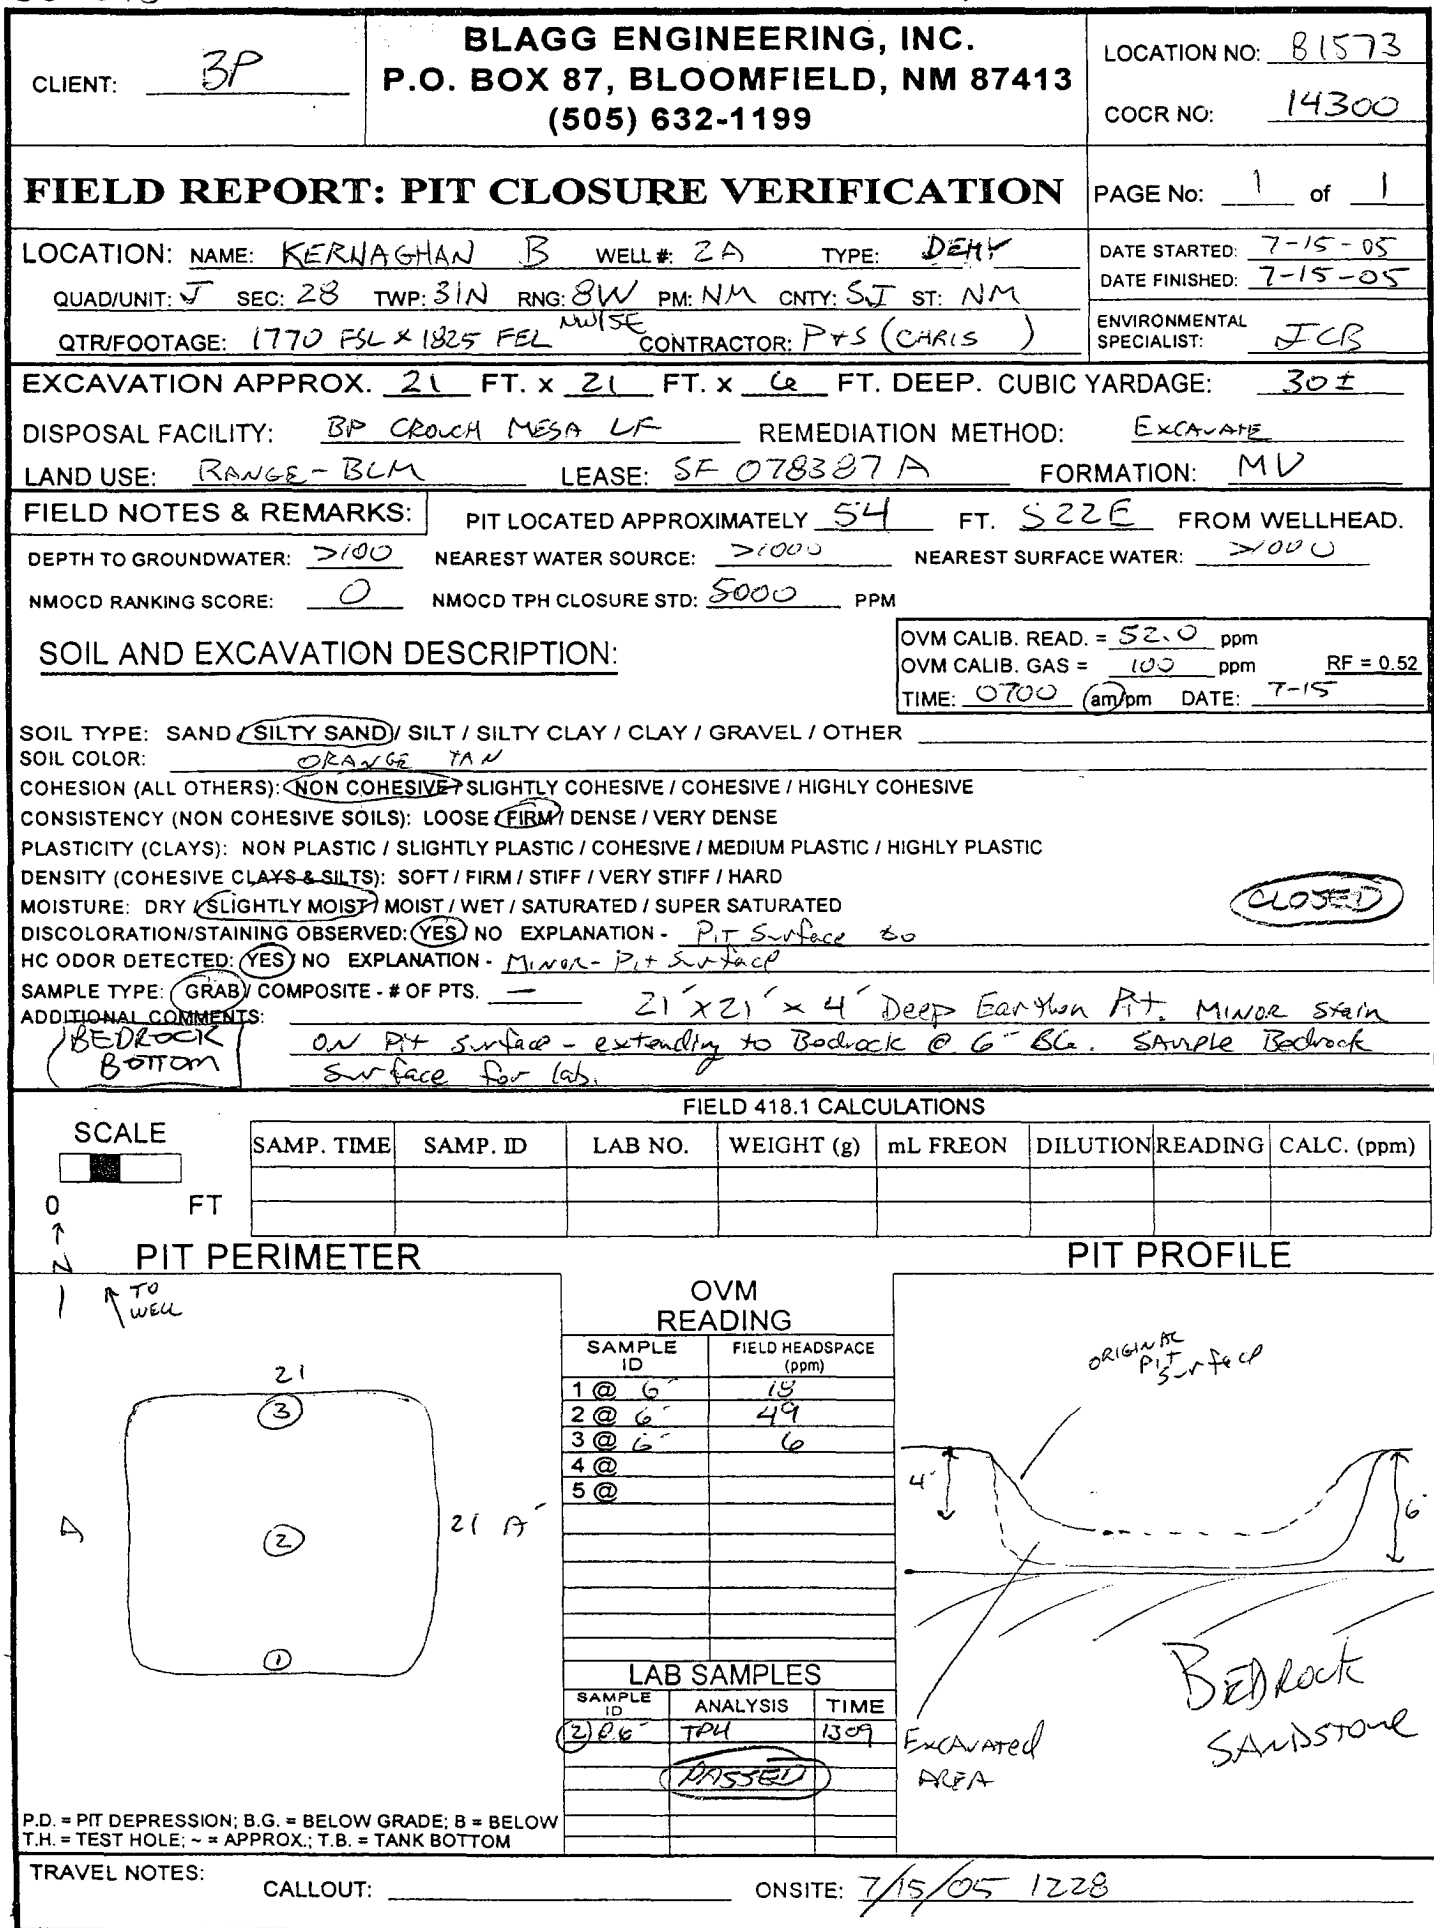 BLAGG ENGINEERING, INC.
P.O. BOX 87, BLOOMFIELD, NM 87413
(505) 632-1199
CLIENT: BP
LOCATION NO: B1573
COCR NO: 14300
FIELD REPORT: PIT CLOSURE VERIFICATION
PAGE No: 1 of 1
LOCATION: NAME: KERNAGHAN B WELL #: 2A TYPE: DEHY
DATE STARTED: 7-15-05
DATE FINISHED: 7-15-05
QUAD/UNIT: J SEC: 28 TWP: 31N RNG: 8W PM: NM CNTY: SJ ST: NM
QTR/FOOTAGE: 1770 FSL x 1825 FEL NW/SE CONTRACTOR: P+S (CHRIS )
ENVIRONMENTAL SPECIALIST: JCB
EXCAVATION APPROX. 21 FT. x 21 FT. x 6 FT. DEEP. CUBIC YARDAGE: 30±
DISPOSAL FACILITY: BP CROUCH MESA LF REMEDIATION METHOD: EXCAVATE
LAND USE: RANGE - BLM LEASE: SF 078387A FORMATION: MV
FIELD NOTES & REMARKS: PIT LOCATED APPROXIMATELY 54 FT. S22E FROM WELLHEAD.
DEPTH TO GROUNDWATER: >100 NEAREST WATER SOURCE: >1000 NEAREST SURFACE WATER: >1000
NMOCD RANKING SCORE: 0 NMOCD TPH CLOSURE STD: 5000 PPM
SOIL AND EXCAVATION DESCRIPTION:
OVM CALIB. READ. = 52.0 ppm
OVM CALIB. GAS = 100 ppm RF = 0.52
TIME: 0700 am/pm DATE: 7-15
SOIL TYPE: SAND / SILTY SAND / SILT / SILTY CLAY / CLAY / GRAVEL / OTHER
SOIL COLOR: ORANGE TAN
COHESION (ALL OTHERS): NON COHESIVE / SLIGHTLY COHESIVE / COHESIVE / HIGHLY COHESIVE
CONSISTENCY (NON COHESIVE SOILS): LOOSE / FIRM / DENSE / VERY DENSE
PLASTICITY (CLAYS): NON PLASTIC / SLIGHTLY PLASTIC / COHESIVE / MEDIUM PLASTIC / HIGHLY PLASTIC
DENSITY (COHESIVE CLAYS & SILTS): SOFT / FIRM / STIFF / VERY STIFF / HARD
MOISTURE: DRY / SLIGHTLY MOIST / MOIST / WET / SATURATED / SUPER SATURATED
CLOSED
DISCOLORATION/STAINING OBSERVED: YES / NO EXPLANATION - Pit Surface to
HC ODOR DETECTED: YES / NO EXPLANATION - Minor - Pit Surface
SAMPLE TYPE: GRAB / COMPOSITE - # OF PTS. —
ADDITIONAL COMMENTS: 21' x 21' x 4' Deep Earthen Pit. Minor stain
on Pit surface - extending to Bedrock @ 6' BG. Sample Bedrock
Surface for lab.
BEDROCK
BOTTOM
FIELD 418.1 CALCULATIONS
SCALE
0 FT
SAMP. TIME SAMP. ID LAB NO. WEIGHT (g) mL FREON DILUTION READING CALC. (ppm)
N
PIT PERIMETER
TO WELL
21
3
2
1
A
21 A'
OVM
READING
SAMPLE ID FIELD HEADSPACE (ppm)
1 @ 6' 18
2 @ 6' 49
3 @ 6' 6
4 @
5 @
LAB SAMPLES
SAMPLE ID ANALYSIS TIME
2 @ 6' TPH 1309
PASSED
PIT PROFILE
ORIGINAL
PIT
Surface
4'
6'
EXCAVATED
AREA
BEDROCK
SANDSTONE
P.D. = PIT DEPRESSION; B.G. = BELOW GRADE; B = BELOW
T.H. = TEST HOLE; ~ = APPROX.; T.B. = TANK BOTTOM
TRAVEL NOTES:
CALLOUT: ONSITE: 7/15/05 1228